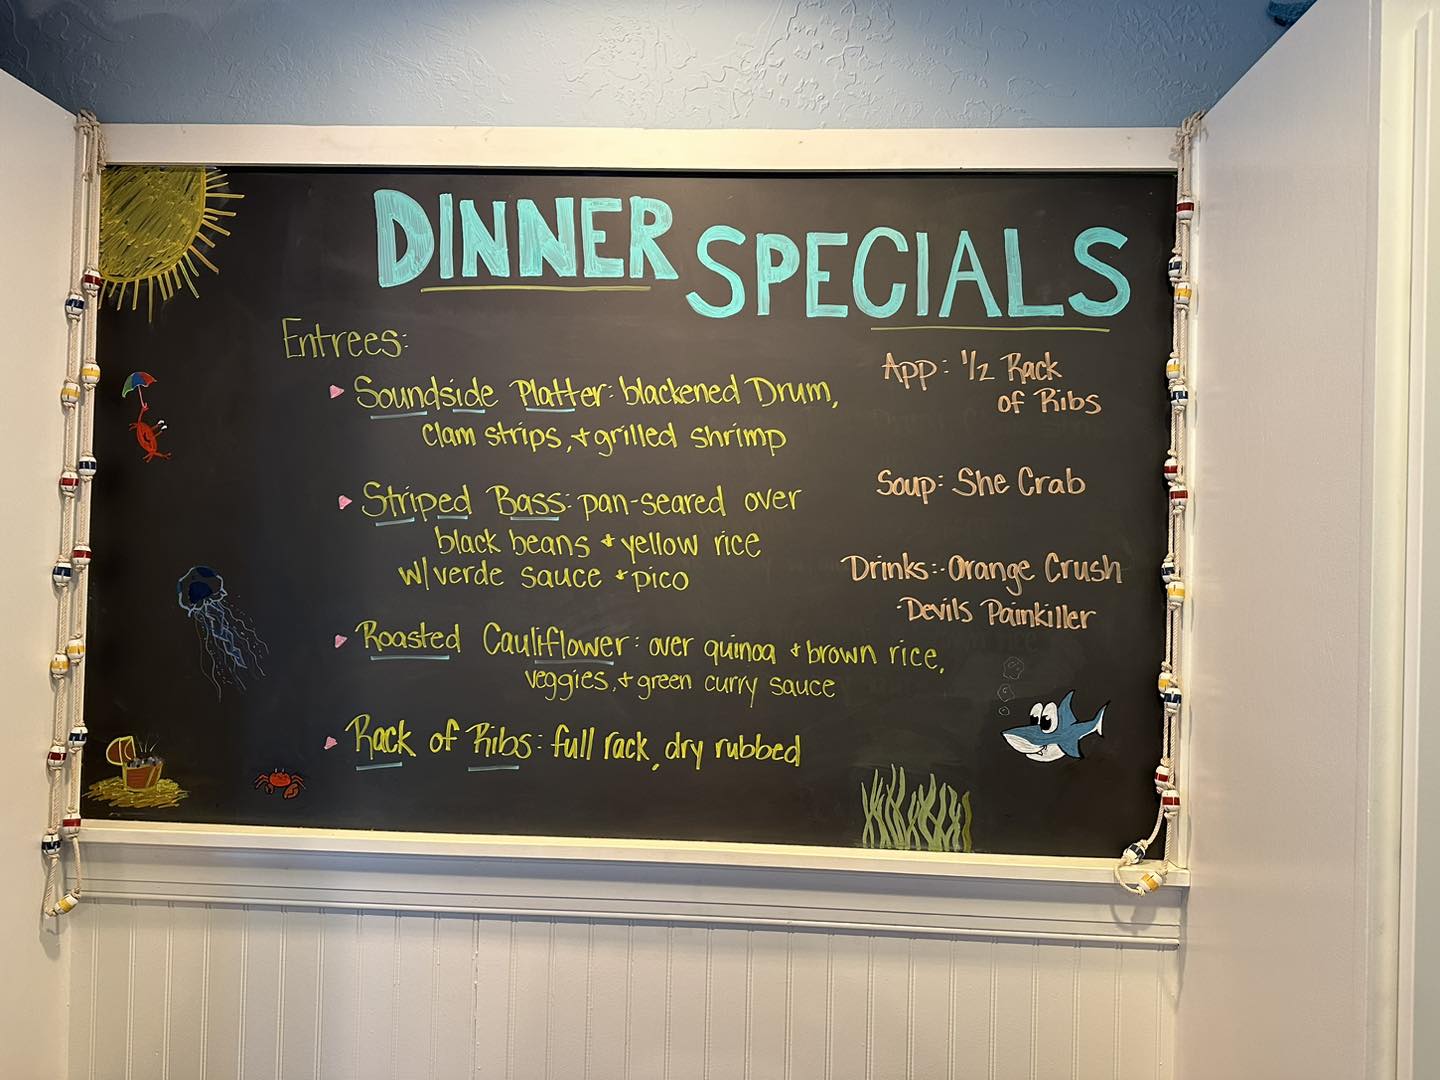 DINNER SPECIALS
Entrees:
Soundside Platter: blackened Drum,
clam strips, + grilled shrimp
Striped Bass: pan-seared over
black beans + yellow rice
w/ verde sauce + pico
Roasted Cauliflower: over quinoa + brown rice,
veggies, + green curry sauce
Rack of Ribs: full rack, dry rubbed
App: 1/2 Rack
of Ribs
Soup: She Crab
Drinks: · Orange Crush
· Devils Painkiller